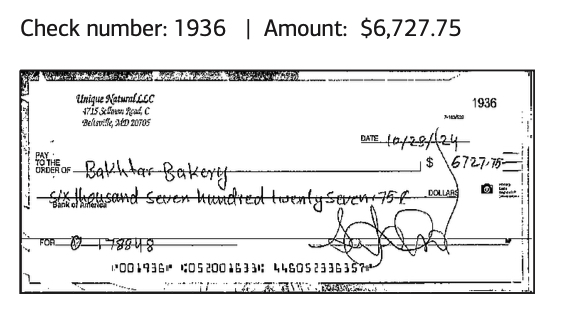 Check number: 1936 | Amount: $6,727.75
Unique Natural LLC
1936
4715 Sellman Road, C
Beltsville, MD 20705
DATE 10/29/24
PAY TO THE ORDER OF Bakhtar Bakery $ 6727.75
six thousand seven hundred twenty seven. 75 DOLLARS
Bank of America
FOR 178848
⑈001936⑈ ⑆052001633⑆ 446052336357⑈